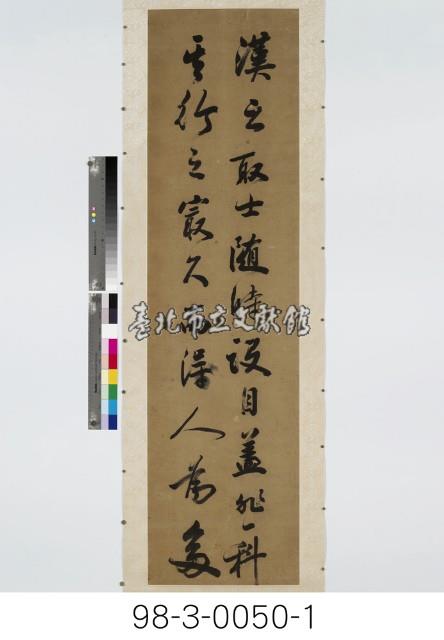 漢之取士隨時設目蓋非一科
其行之最久而得人為多
臺北市立文獻館
98-3-0050-1